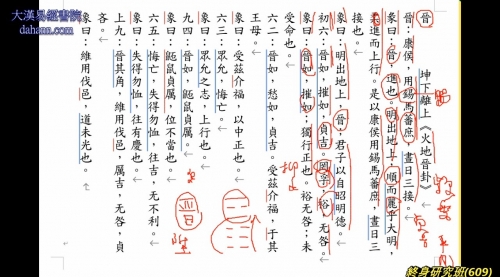 大漢易經書院
dahann.com
坤下離上《火地晉卦》
晉
晉：康侯，用錫馬蕃庶，晝日三接。
彖曰：晉，進也。明出地上，順而麗乎大明，
柔進而上行。是以康侯用錫馬蕃庶，晝日三
接也。
象曰：明出地上，晉；君子以自昭明德。
初六：晉如，摧如，貞吉。罔孚，裕，无咎。
象曰：晉如，摧如；獨行正也。裕无咎；未
受命也。
六二：晉如，愁如，貞吉。受茲介福，于其
王母。
象曰：受茲介福，以中正也。
六三：眾允，悔亡。
象曰：眾允之志，上行也。
九四：晉如，鼫鼠貞厲。
象曰：鼫鼠貞厲，位不當也。
六五：悔亡，失得勿恤，往吉，无不利。
象曰：失得勿恤，往有慶也。
上九：晉其角，維用伐邑，厲吉，无咎，貞
吝。
象曰：維用伐邑，道未光也。
終身研究班(609)